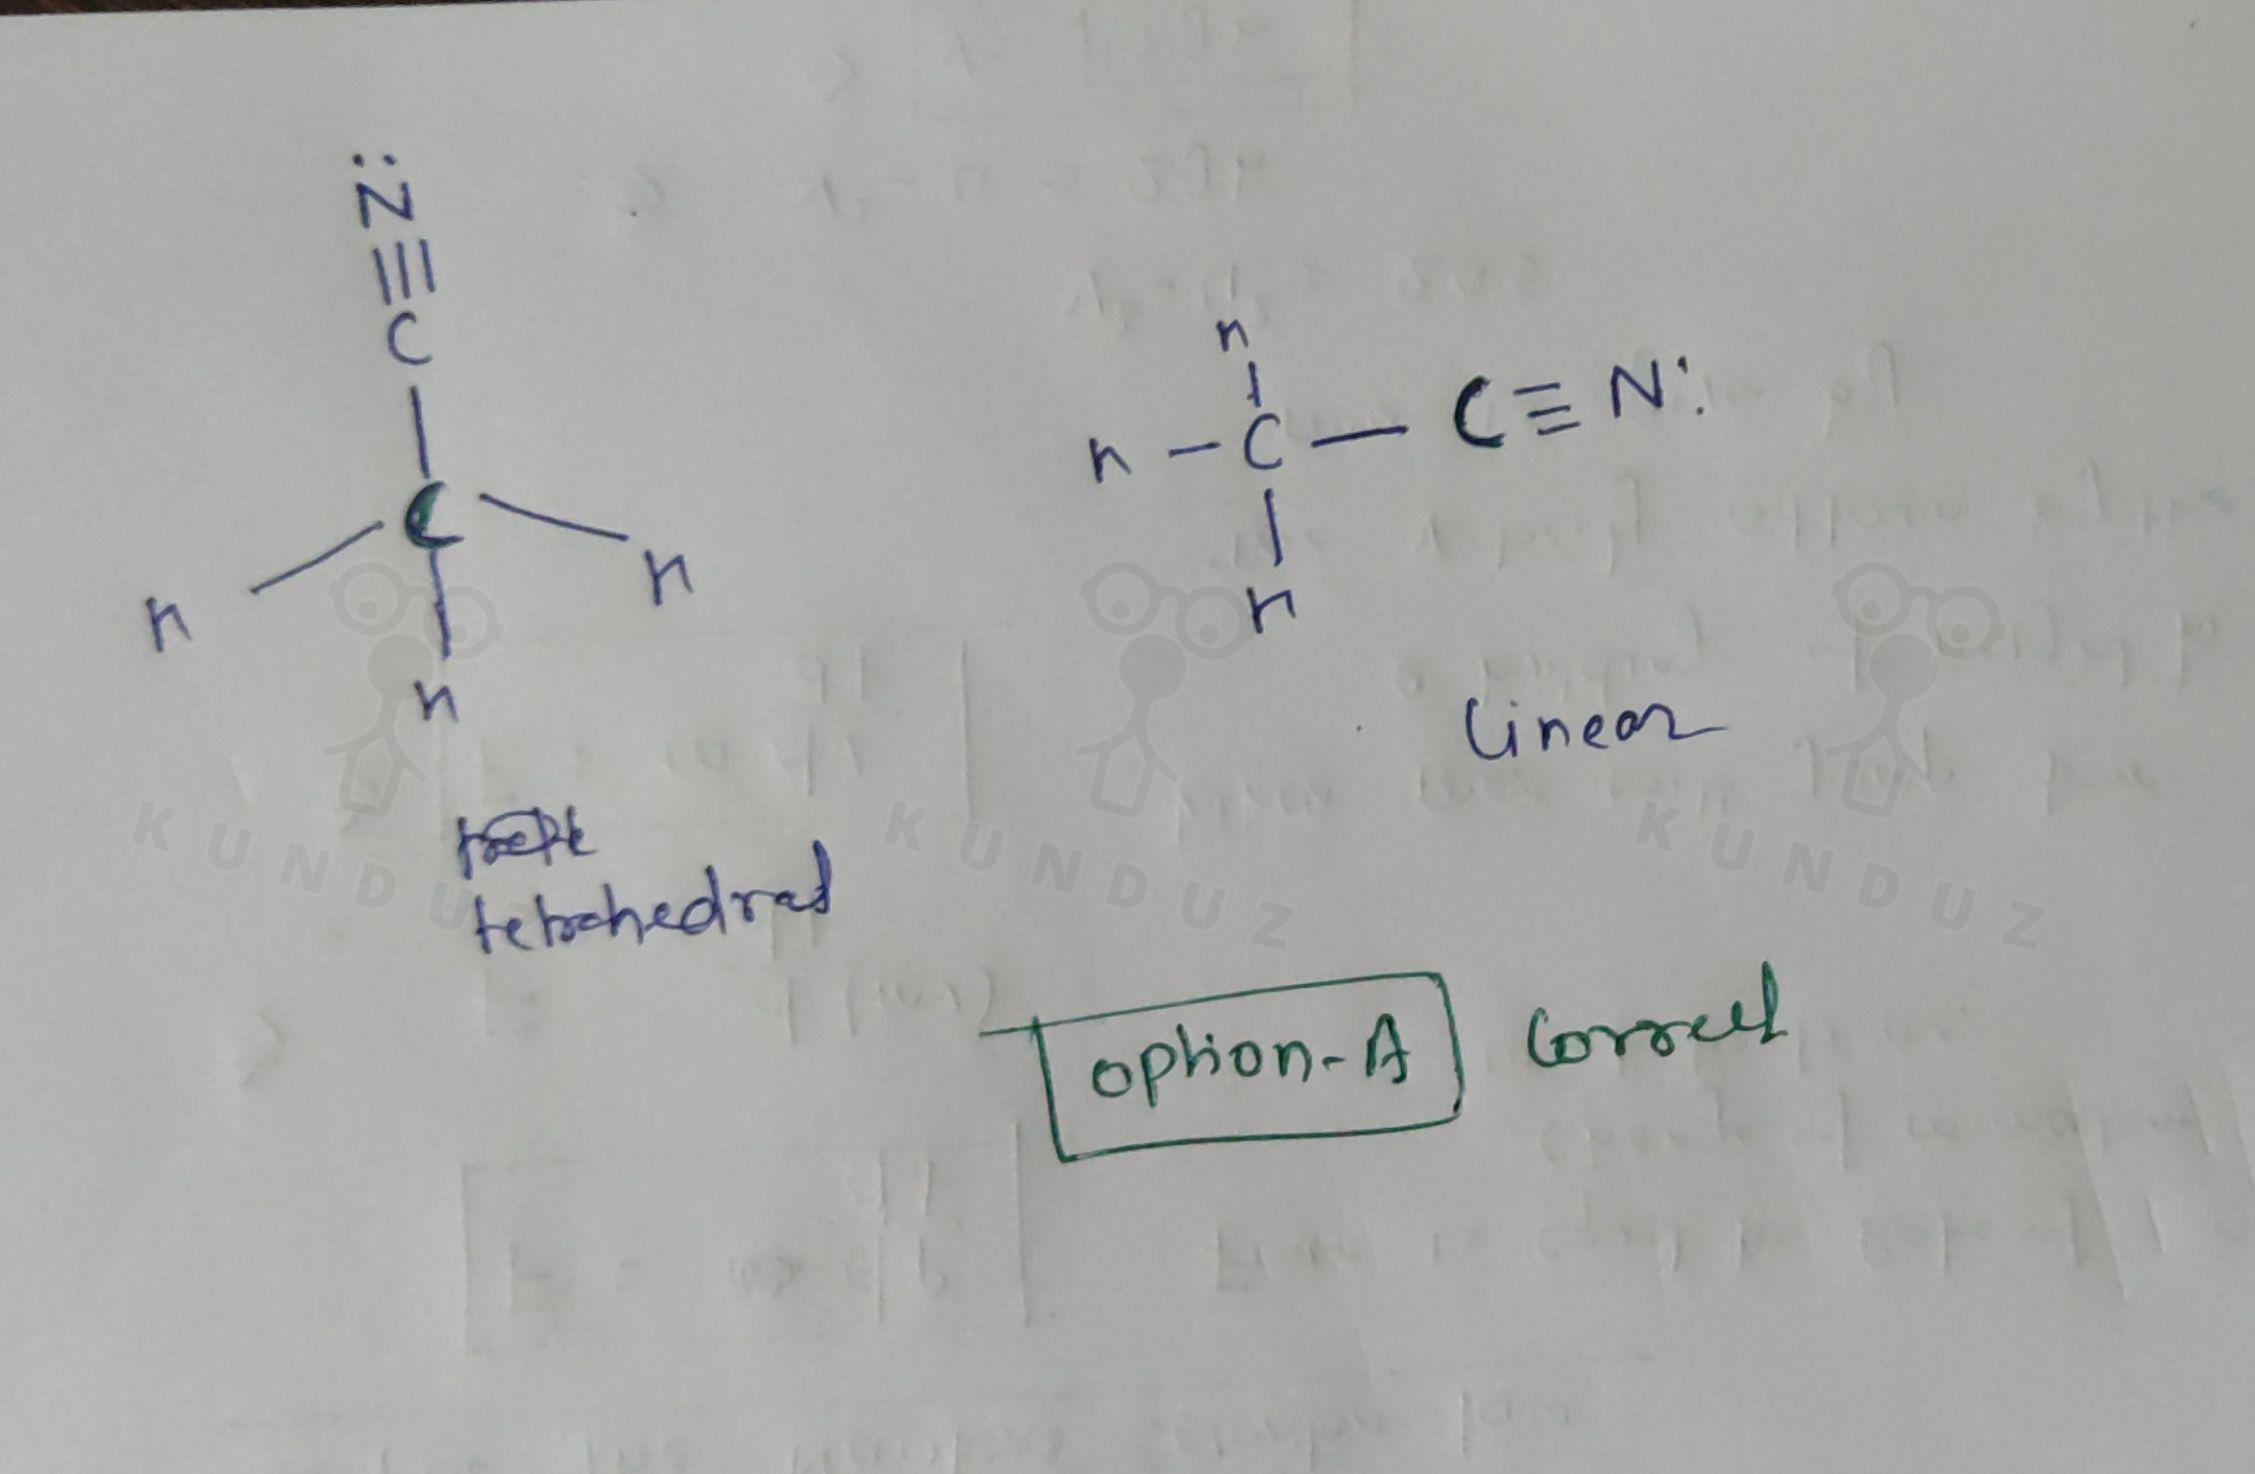 :N
≡
C
C
n
n
n
tetrahedral
n
n - C — C ≡ N:
n
Linear
option-A correct
KUNDUZ KUNDUZ KUNDUZ